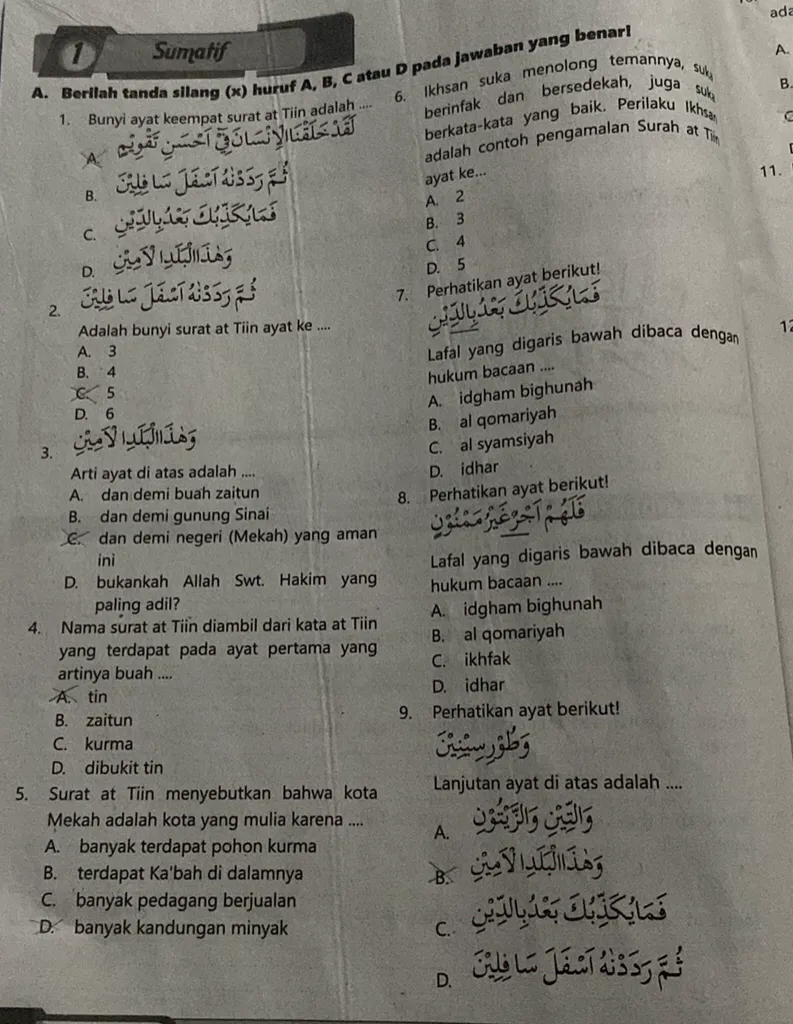 1 Sumatif
A. Berilah tanda silang (x) huruf A, B, C atau D pada jawaban yang benar!
1. Bunyi ayat keempat surat at Tiin adalah ....
A. لَقَدْ خَلَقْنَا الْاِنْسَانَ فِيْٓ اَحْسَنِ تَقْوِيْمٍ
B. ثُمَّ رَدَدْنٰهُ اَسْفَلَ سَا فِلِيْنَ
C. فَمَا يُكَذِّبُكَ بَعْدُ بِالدِّيْنِ
D. وَهٰذَا الْبَلَدِ الْاَمِيْنِ
2. ثُمَّ رَدَدْنٰهُ اَسْفَلَ سَا فِلِيْنَ
Adalah bunyi surat at Tiin ayat ke ....
A. 3
B. 4
C. 5
D. 6
3. وَهٰذَا الْبَلَدِ الْاَمِيْنِ
Arti ayat di atas adalah ....
A. dan demi buah zaitun
B. dan demi gunung Sinai
C. dan demi negeri (Mekah) yang aman
ini
D. bukankah Allah Swt. Hakim yang
paling adil?
4. Nama surat at Tiin diambil dari kata at Tiin
yang terdapat pada ayat pertama yang
artinya buah ....
A. tin
B. zaitun
C. kurma
D. dibukit tin
5. Surat at Tiin menyebutkan bahwa kota
Mekah adalah kota yang mulia karena ....
A. banyak terdapat pohon kurma
B. terdapat Ka'bah di dalamnya
C. banyak pedagang berjualan
D. banyak kandungan minyak
6. Ikhsan suka menolong temannya, suka
berinfak dan bersedekah, juga suka
berkata-kata yang baik. Perilaku Ikhsan
adalah contoh pengamalan Surah at Tiin
ayat ke...
A. 2
B. 3
C. 4
D. 5
7. Perhatikan ayat berikut!
فَمَا يُكَذِّبُكَ بَعْدُ بِالدِّيْنِ
Lafal yang digaris bawah dibaca dengan
hukum bacaan ....
A. idgham bighunah
B. al qomariyah
C. al syamsiyah
D. idhar
8. Perhatikan ayat berikut!
فَلَهُمْ اَجْرٌ غَيْرُ مَمْنُوْنٍ
Lafal yang digaris bawah dibaca dengan
hukum bacaan ....
A. idgham bighunah
B. al qomariyah
C. ikhfak
D. idhar
9. Perhatikan ayat berikut!
وَطُوْرِ سِيْنِيْنَ
Lanjutan ayat di atas adalah ....
A. وَالتِّيْنِ وَالزَّيْتُوْنِ
B. وَهٰذَا الْبَلَدِ الْاَمِيْنِ
C. فَمَا يُكَذِّبُكَ بَعْدُ بِالدِّيْنِ
D. ثُمَّ رَدَدْنٰهُ اَسْفَلَ سَا فِلِيْنَ
ada
A.
B.
C
11.
12